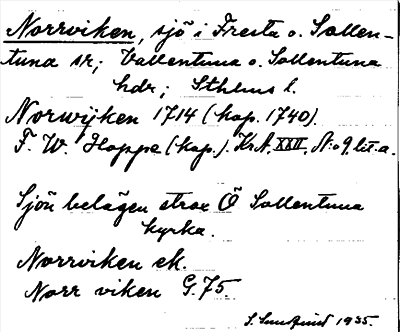 Norrviken, sjö i Fresta o. Sollen-
tuna sr; Vallentuna o. Sollentuna
hdr; Sthlms l.
Norwijken 1714 (kop. 1740).
F. W. Hoppe (kop.). Kr.A. XXII, N:o 9 lit. a.
Sjön belägen strax Ö Sollentuna
kyrka.
Norrviken ek.
Norr viken G. 75
1935.